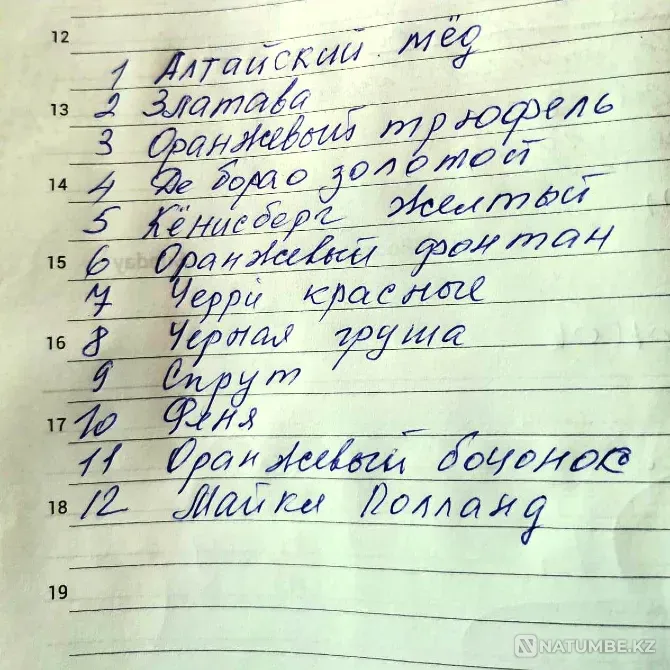 12
1 Алтайский мёд
13 2 Златава
3 Оранжевый трюфель
14 4 Де борао золотой
5 Кёнисберг желтый
15 6 Оранжевый фонтан
7 Черри красные
16 8 Черная груша
9 Спрут
17 10 Феня
11 Оранжевый бочонок
18 12 Майкл Полланд
19
NATUMBE.KZ